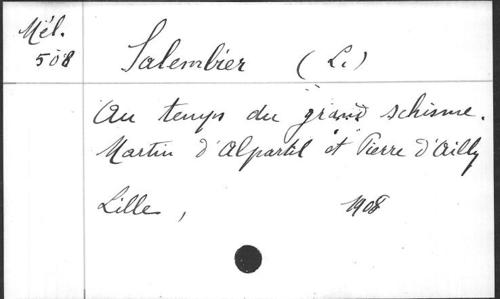 Mél.
508
Salembier (L.)
Au temps du grand schisme.
Martin d'Alpartil et Pierre d'Ailly
Lille, 1908